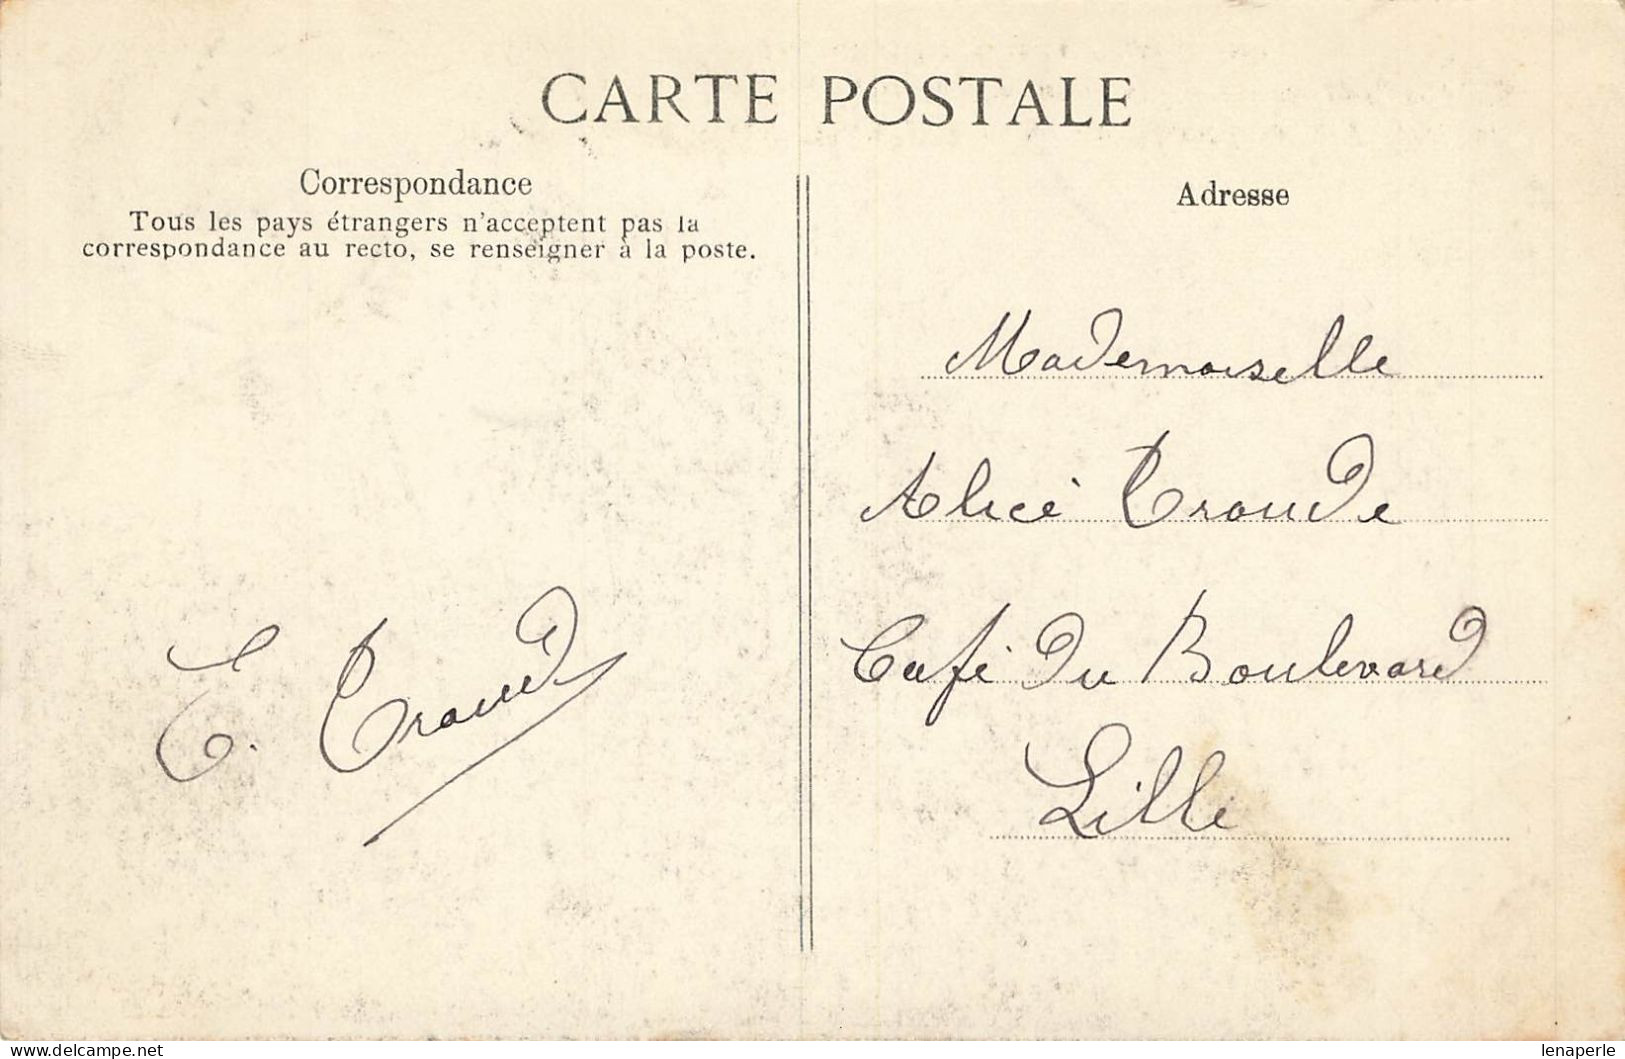 CARTE POSTALE
Correspondance
Tous les pays étrangers n'acceptent pas la
correspondance au recto, se renseigner à la poste.
E. Craoud
Adresse
Mademoiselle
Alice Craoude
Café du Boulevard
Lille
www.delcampe.net
lenaperle